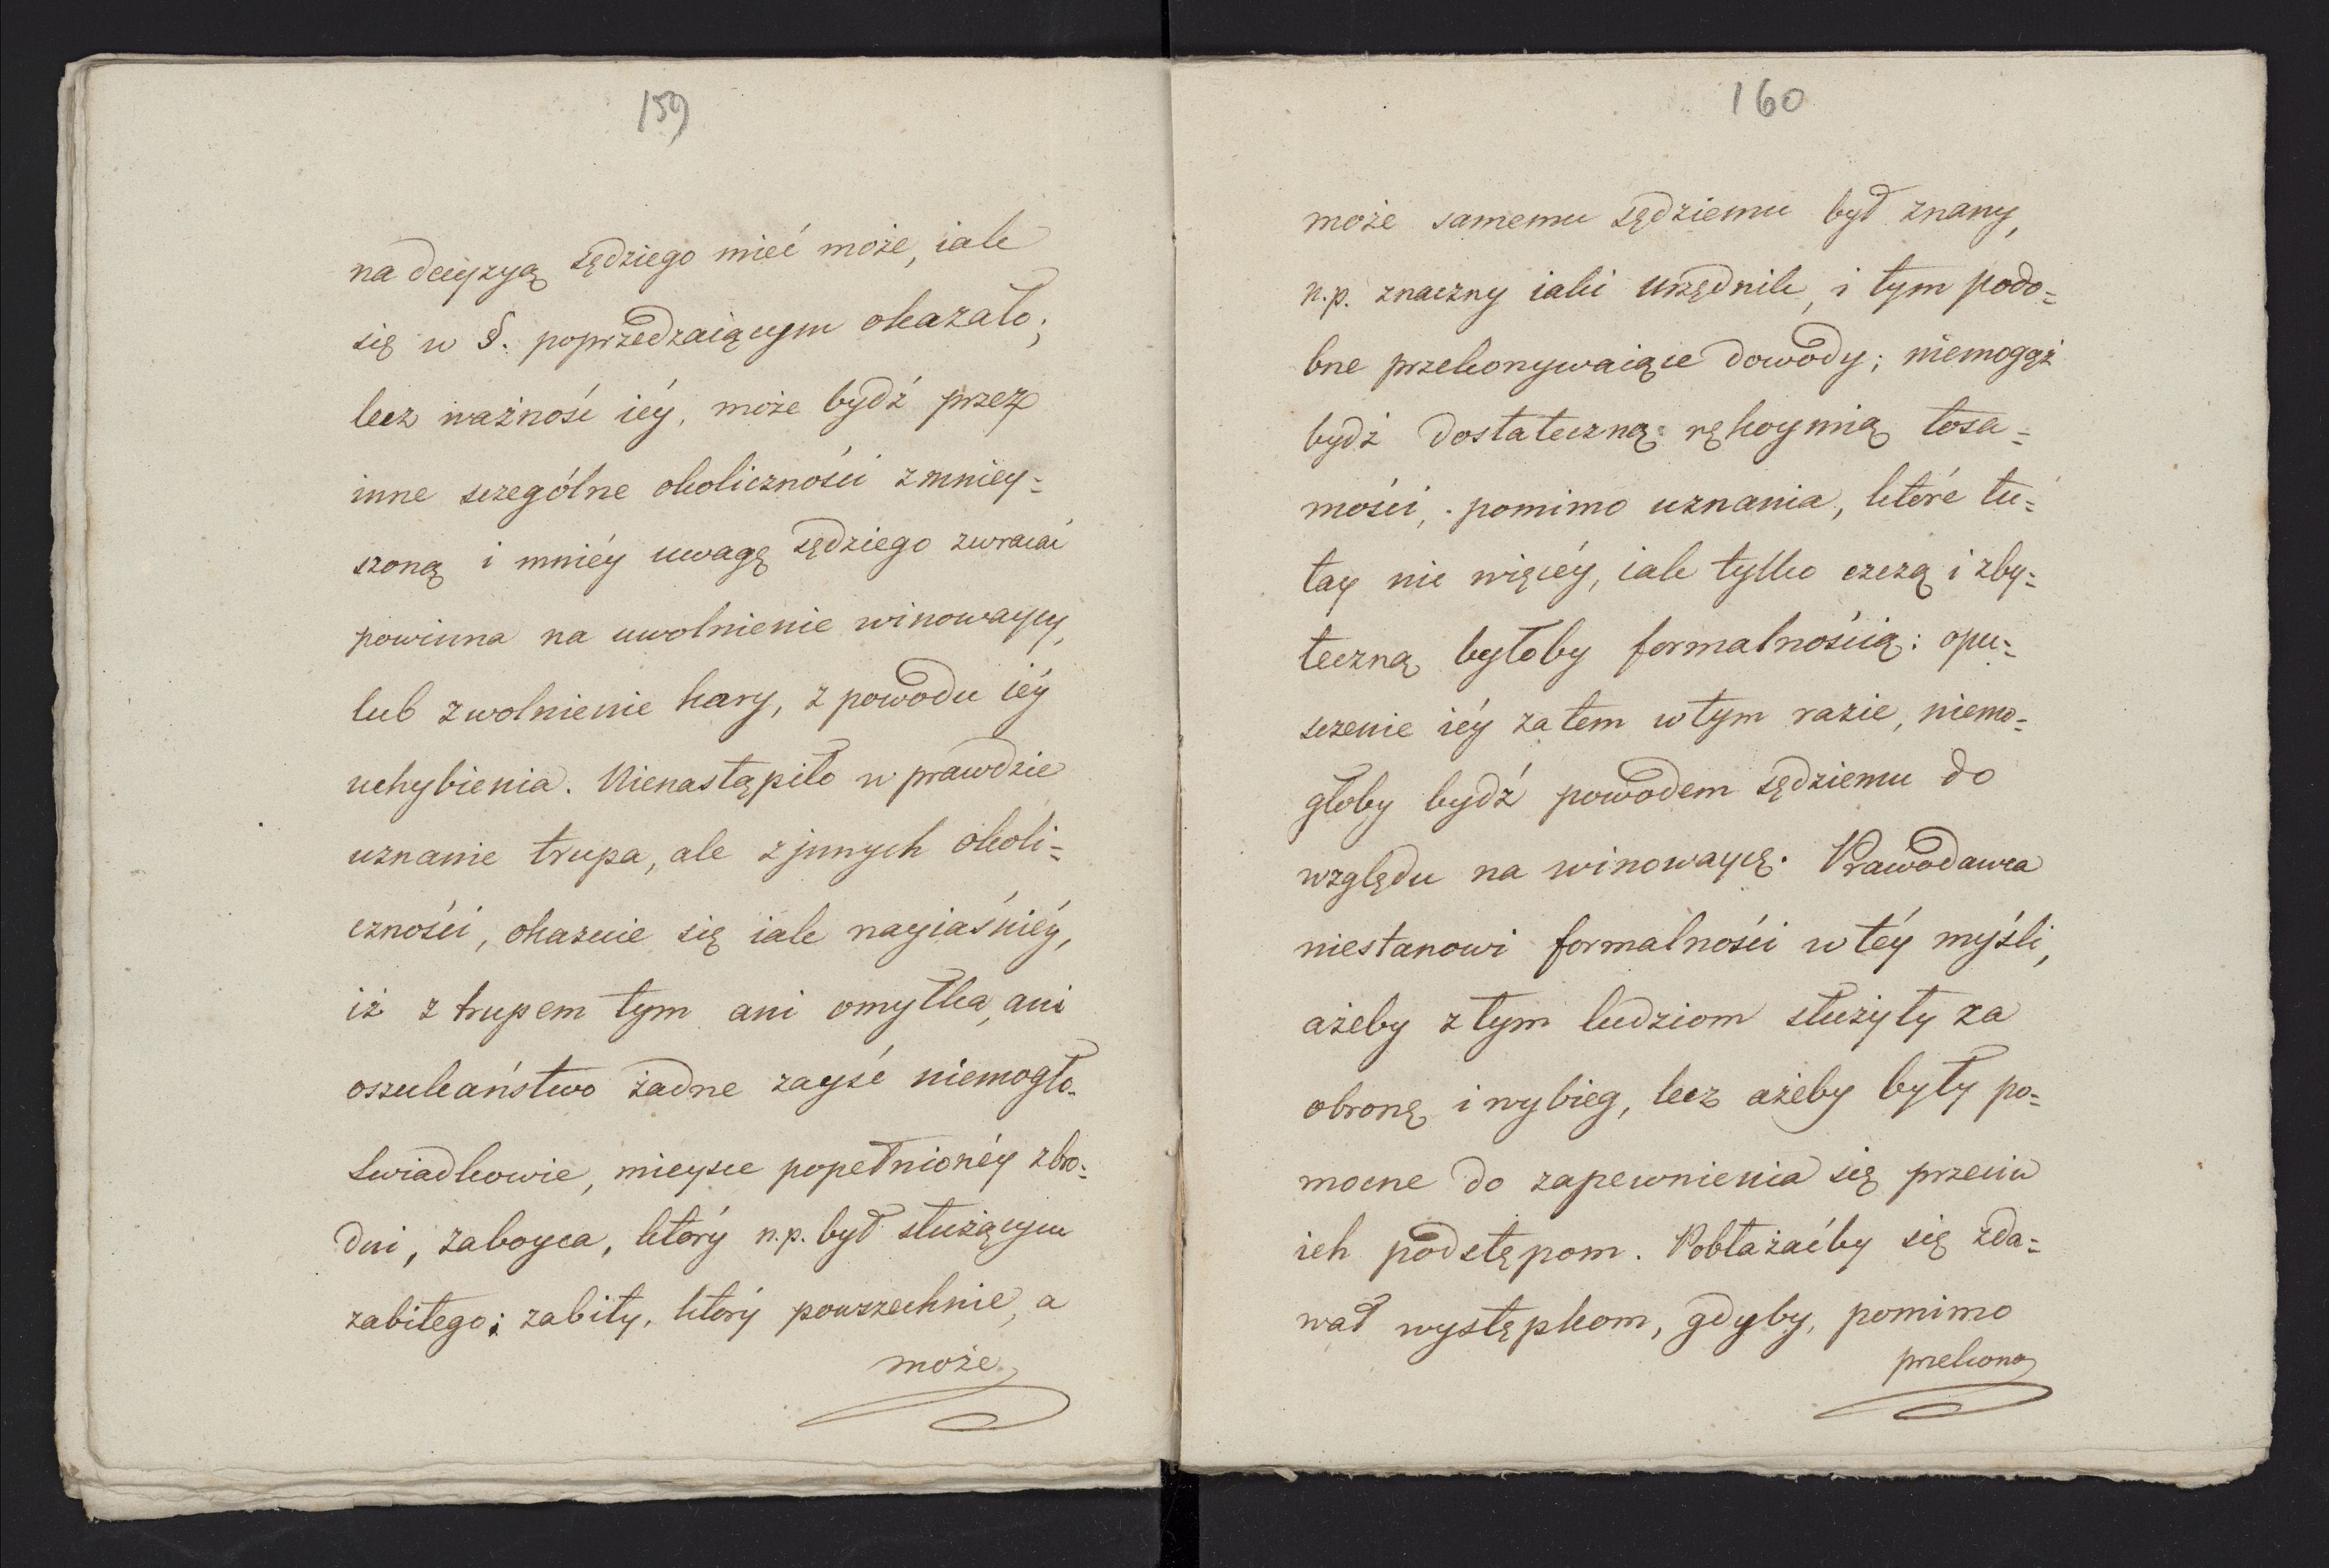 159
na decyzyą sędziego mieć może, iak
się w §. poprzedzaiącym okazało;
lecz ważność iéy, może bydź przez
inne sczególne okoliczności zmniey=
szoną i mniéy uwagę sędziego zwracać
powinna na uwolnienie winowaycy,
lub zwolnienie kary, z powodu iéy
uchybienia. Nienastąpiło w prawdzie
uznanie trupa, ale z jnnych okoli=
czności, okazuie się iak nayiaśniéy,
iż z trupem tym ani omyłka, ani
oszukaństwo żadne zayść niemogło.
Swiadkowie, mieysce popełnionéy zbro=
dni, zaboyca, który n.p. był służącym
zabitego; zabity, który powszechnie, a
może
160
może samemu sędziemu był znany,
n.p. znaczny iaki urzędnik, i tym podo=
bne przekonywaiące dowody; niemogąż
bydź dostateczną rękoymią tosa=
mości, pomimo uznania, które tu=
tay nic więcéy, iak tylko czczą i zby=
teczną byłoby formalnością: opu=
sczenie iéy zatem w tym razie, niemo=
głoby bydź powodem sędziemu do
względu na winowaycę. Prawodawca
niestanowi formalności w téy myśli,
ażeby złym ludziom służyły za
obronę i wybieg, lecz ażeby były po=
mocne do zapewnienia się przeciw
ich podstępom. Pobłażaćby się zda=
wał występkom, gdyby, pomimo
przekona